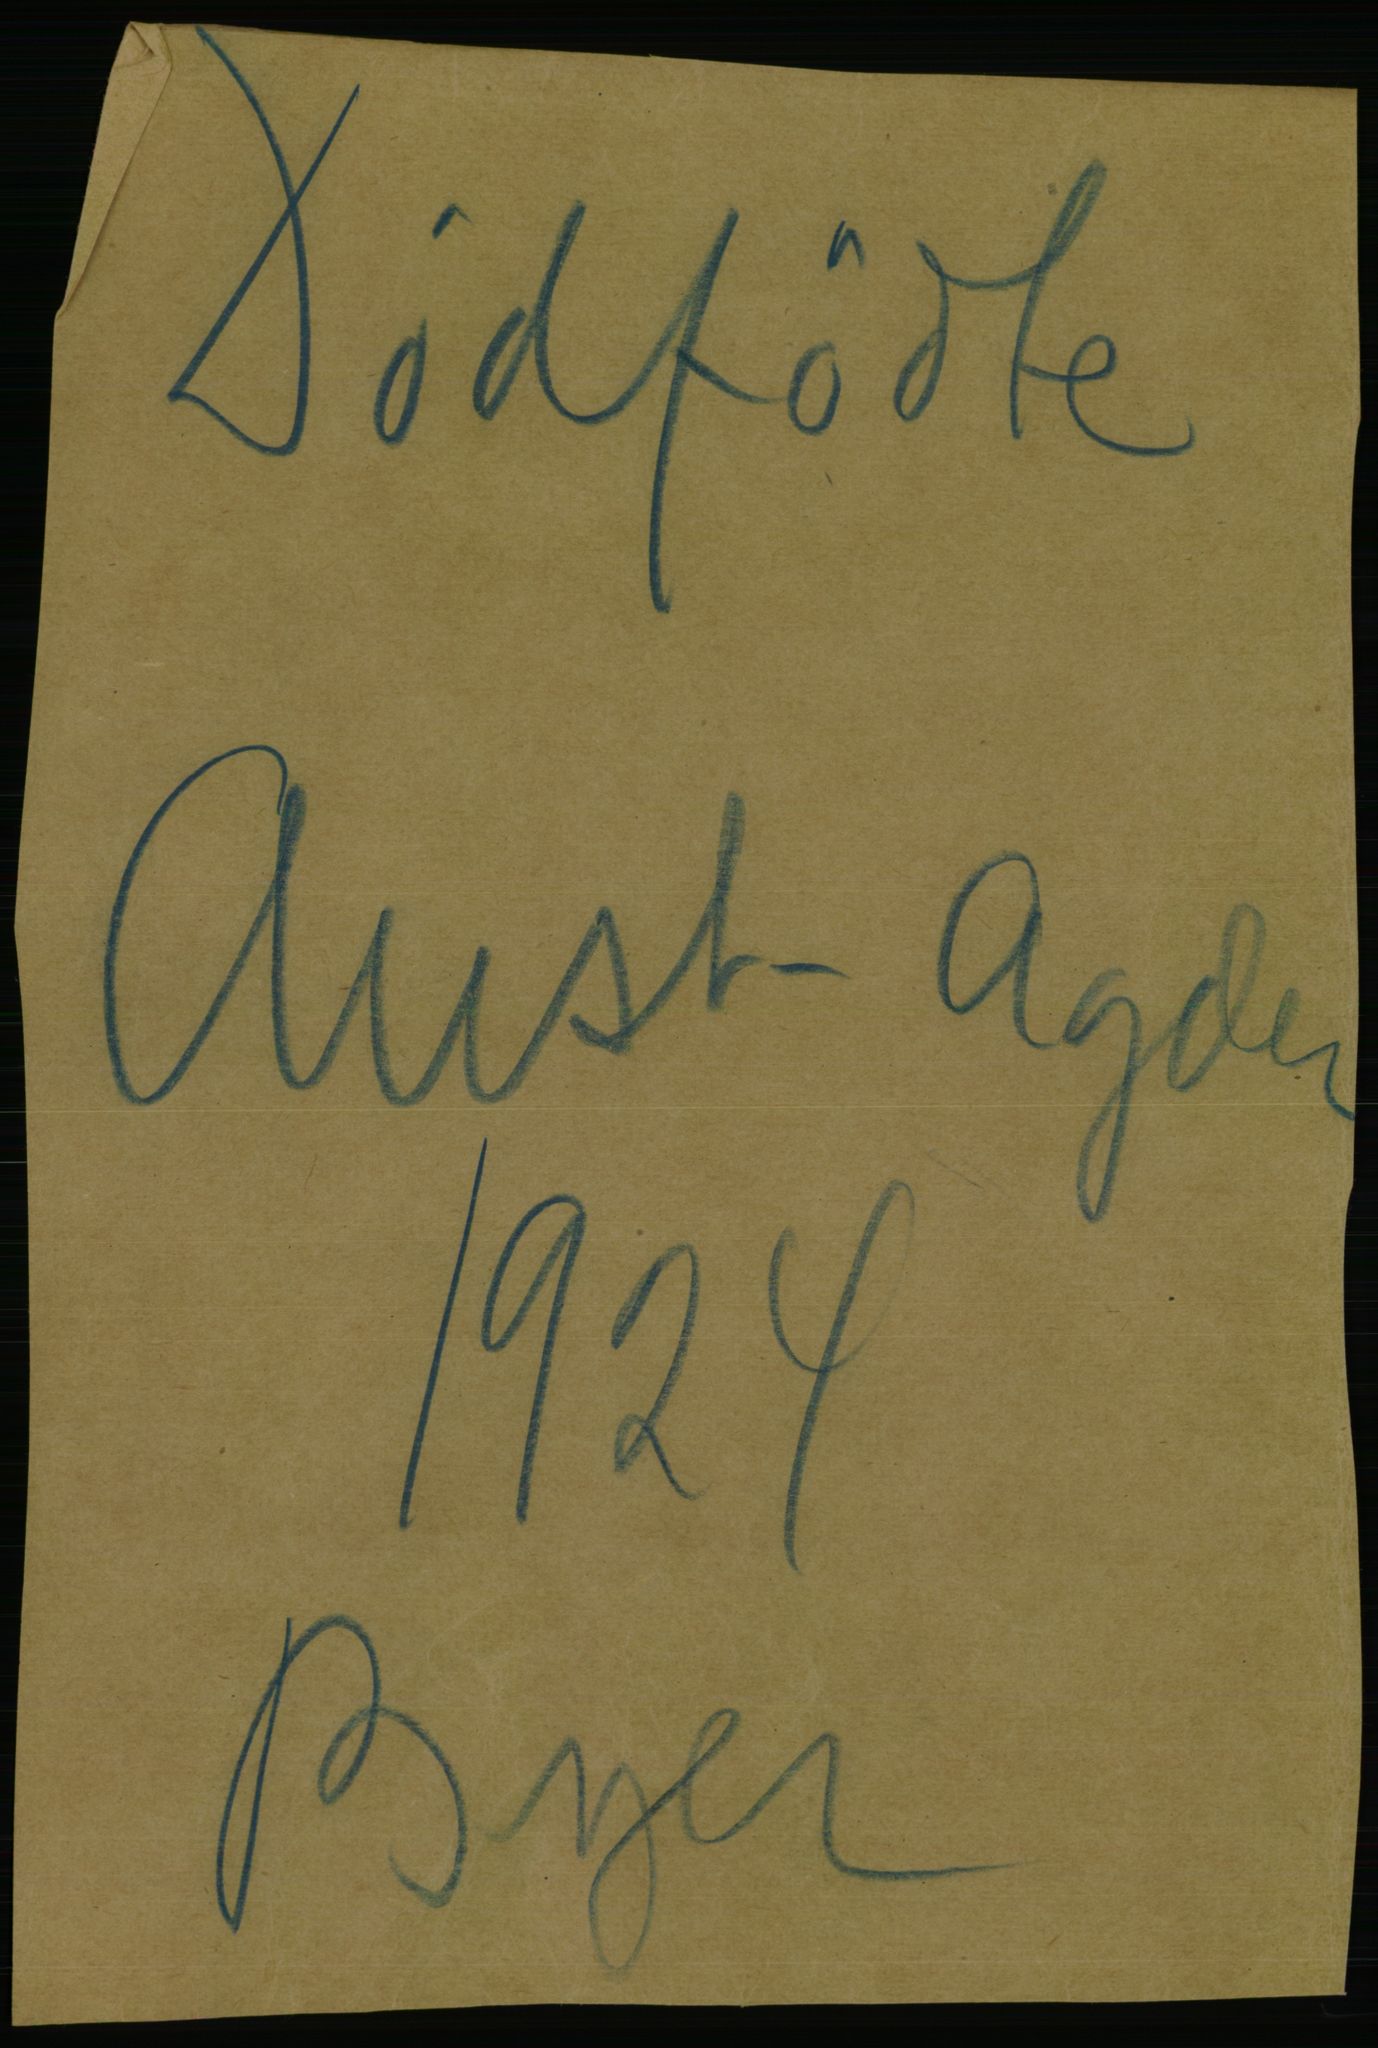 Dödfödte
Aust-Agder
1924
Byer